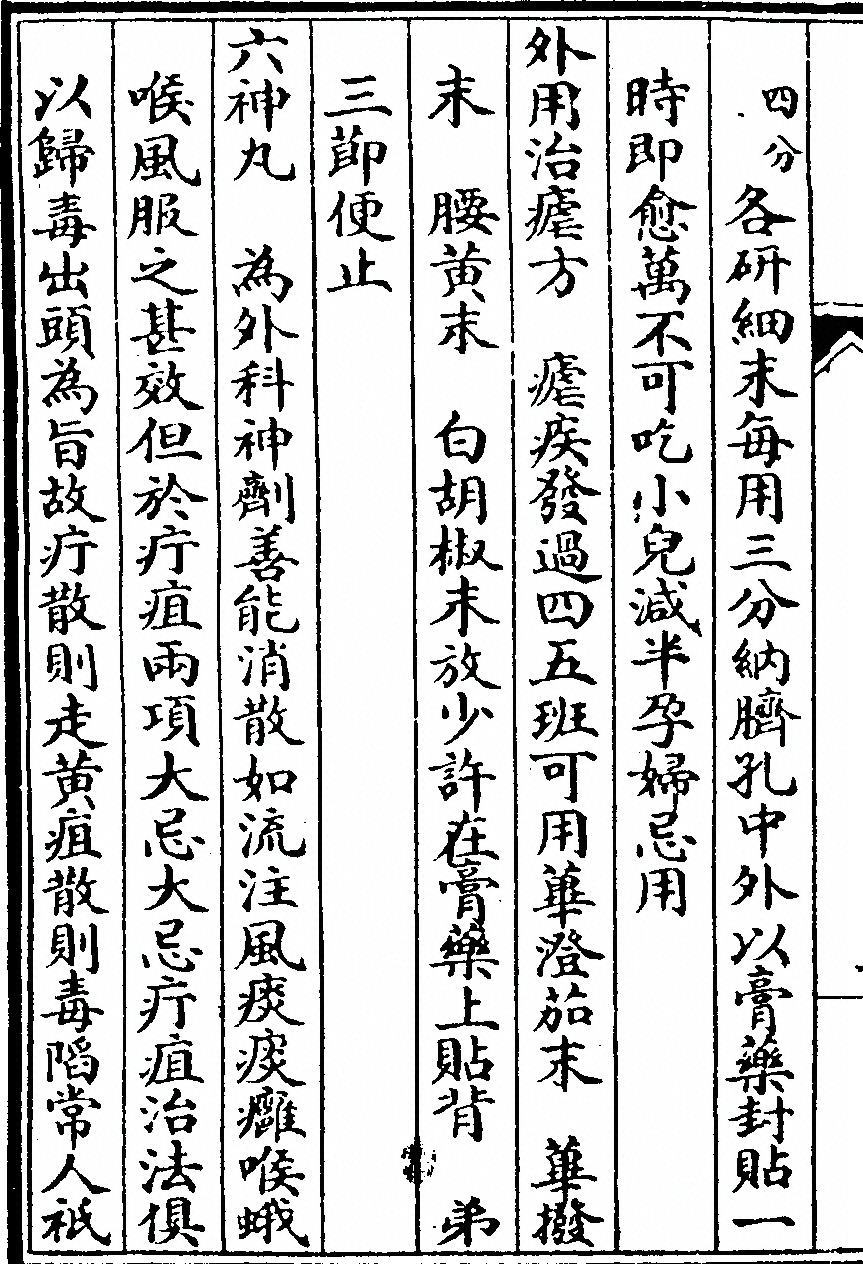 四分各研細末每用三分納臍孔中外以膏藥封貼一
時即愈萬不可吃小兒減半孕婦忌用
外用治瘧方　瘧疾發過四五班可用蓽澄茄末　蓽撥
末　腰黃末　白胡椒末放少許在膏藥上貼背　弟
三節便止
六神丸　為外科神劑善能消散如流注風痰痰癰喉蛾
喉風服之甚效但於疔疽兩項大忌大忌疔疽治法俱
以歸毒出頭為旨故疔散則走黃疽散則毒陷常人祇